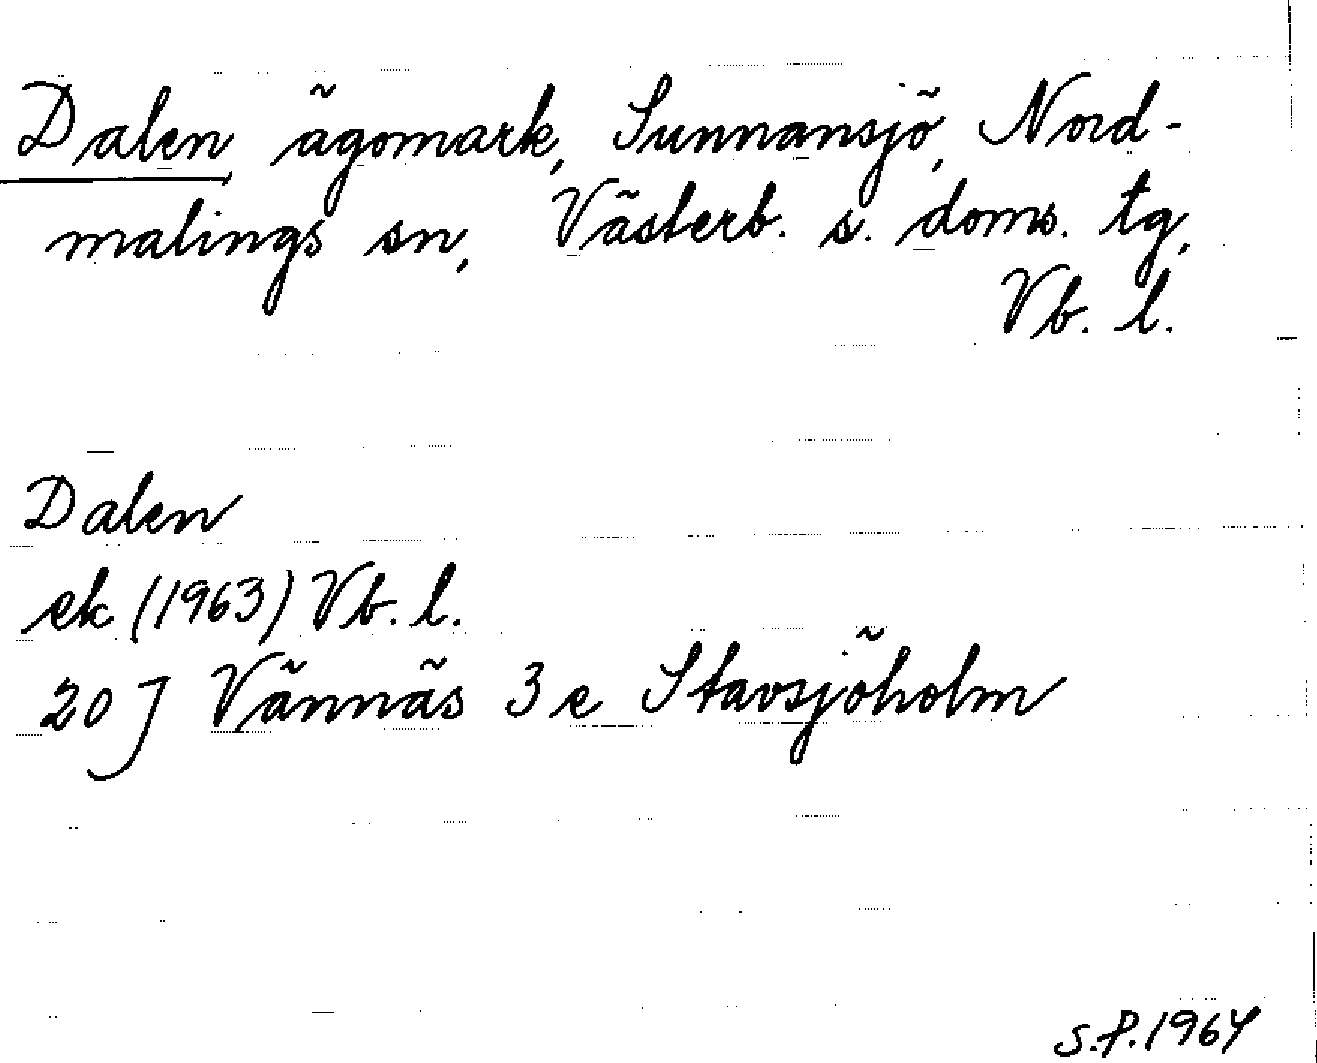 Dalen ägomark, Sunnansjö, Nord-
malings sn, Västerb. s. doms. tg,
Vb. l.
Dalen
ek (1963) Vb. l.
20 J Vännäs 3 e Stavsjöholm
S.P. 1964